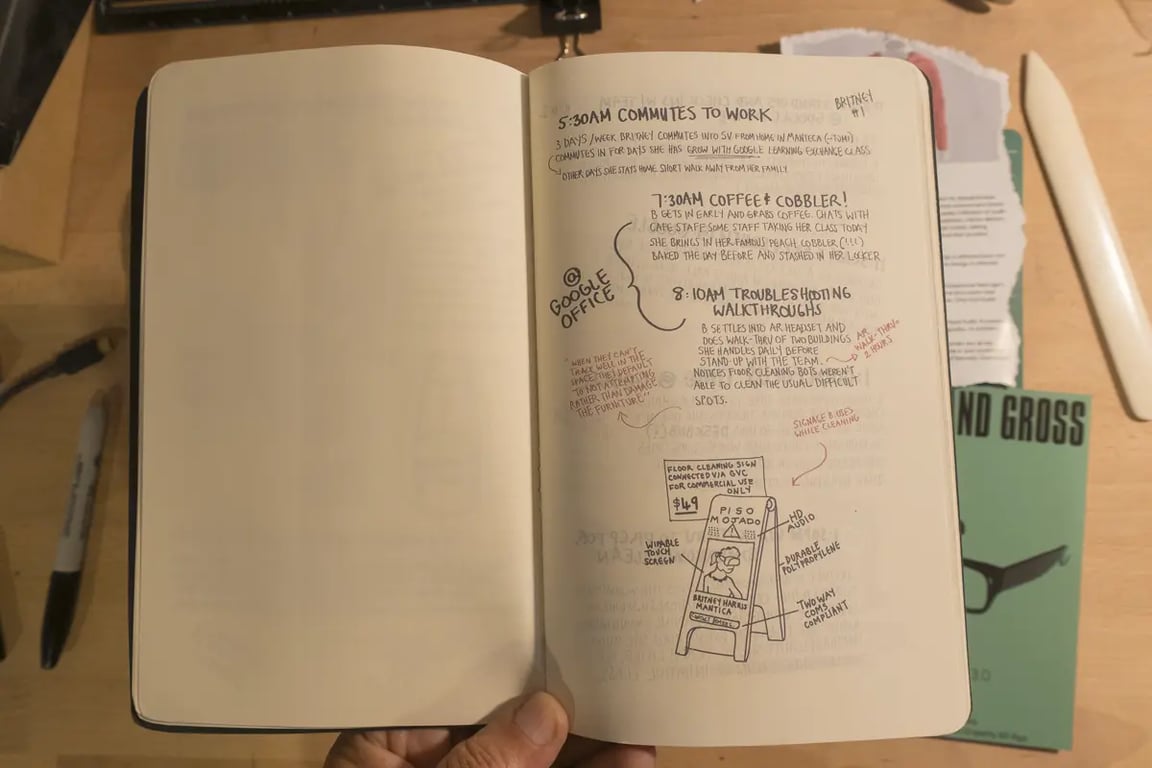 BRITNEY
#1
5:30AM COMMUTES TO WORK
3 DAYS/WEEK BRITNEY COMMUTES INTO SV FROM HOME IN MANTECA (~70MI)
COMMUTES IN FOR DAYS SHE HAS GROW WITH GOOGLE LEARNING EXCHANGE CLASS
OTHER DAYS SHE STAYS HOME SHORT WALK AWAY FROM HER FAMILY
7:30AM COFFEE & COBBLER!
B GETS IN EARLY AND GRABS COFFEE. CHATS WITH
CAFE STAFF SOME STAFF TAKING HER CLASS TODAY
SHE BRINGS IN HER FAMOUS PEACH COBBLER (!!!)
BAKED THE DAY BEFORE AND STASHED IN HER LOCKER
@
GOOGLE
OFFICE
8:10AM TROUBLESHOOTING
WALKTHROUGHS
B SETTLES INTO AR HEADSET AND
DOES WALK-THRU OF TWO BUILDINGS
SHE HANDLES DAILY BEFORE
STAND UP WITH THE TEAM.
NOTICES FLOOR CLEANING BOTS WEREN'T
ABLE TO CLEAN THE USUAL DIFFICULT
SPOTS.
AR
WALK-THRU
2 HOURS
"WHEN THEY CAN'T
TRACK WELL IN THE
SPACE THEY DEFAULT
TO NOT ATTEMPTING
RATHER THAN DAMAGE
THE FURNITURE"
SIGNAGE B. USES
WHILE CLEANING
FLOOR CLEANING SIGN
CONNECTED VIA GVC
FOR COMMERCIAL USE
ONLY
$49
PISO
MOJADO
HD
AUDIO
WIPABLE
TOUCH
SCREEN
DURABLE
POLYPROPYLENE
BRITNEY HARRIS
MANTICA
TWO WAY
COMS
COMPLIANT
ND GROSS